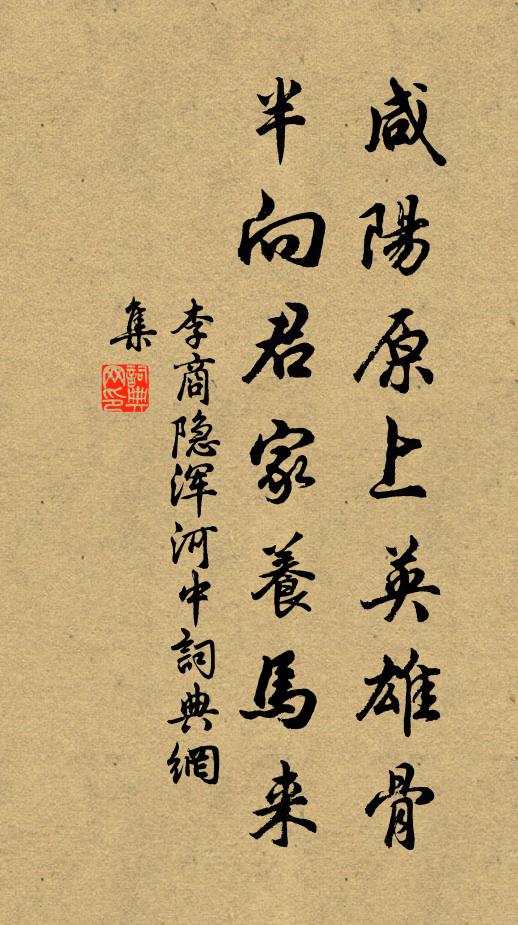 咸陽原上英雄骨
半向君家養馬来
李商隐浑河中詞典網
集
詞典
网印